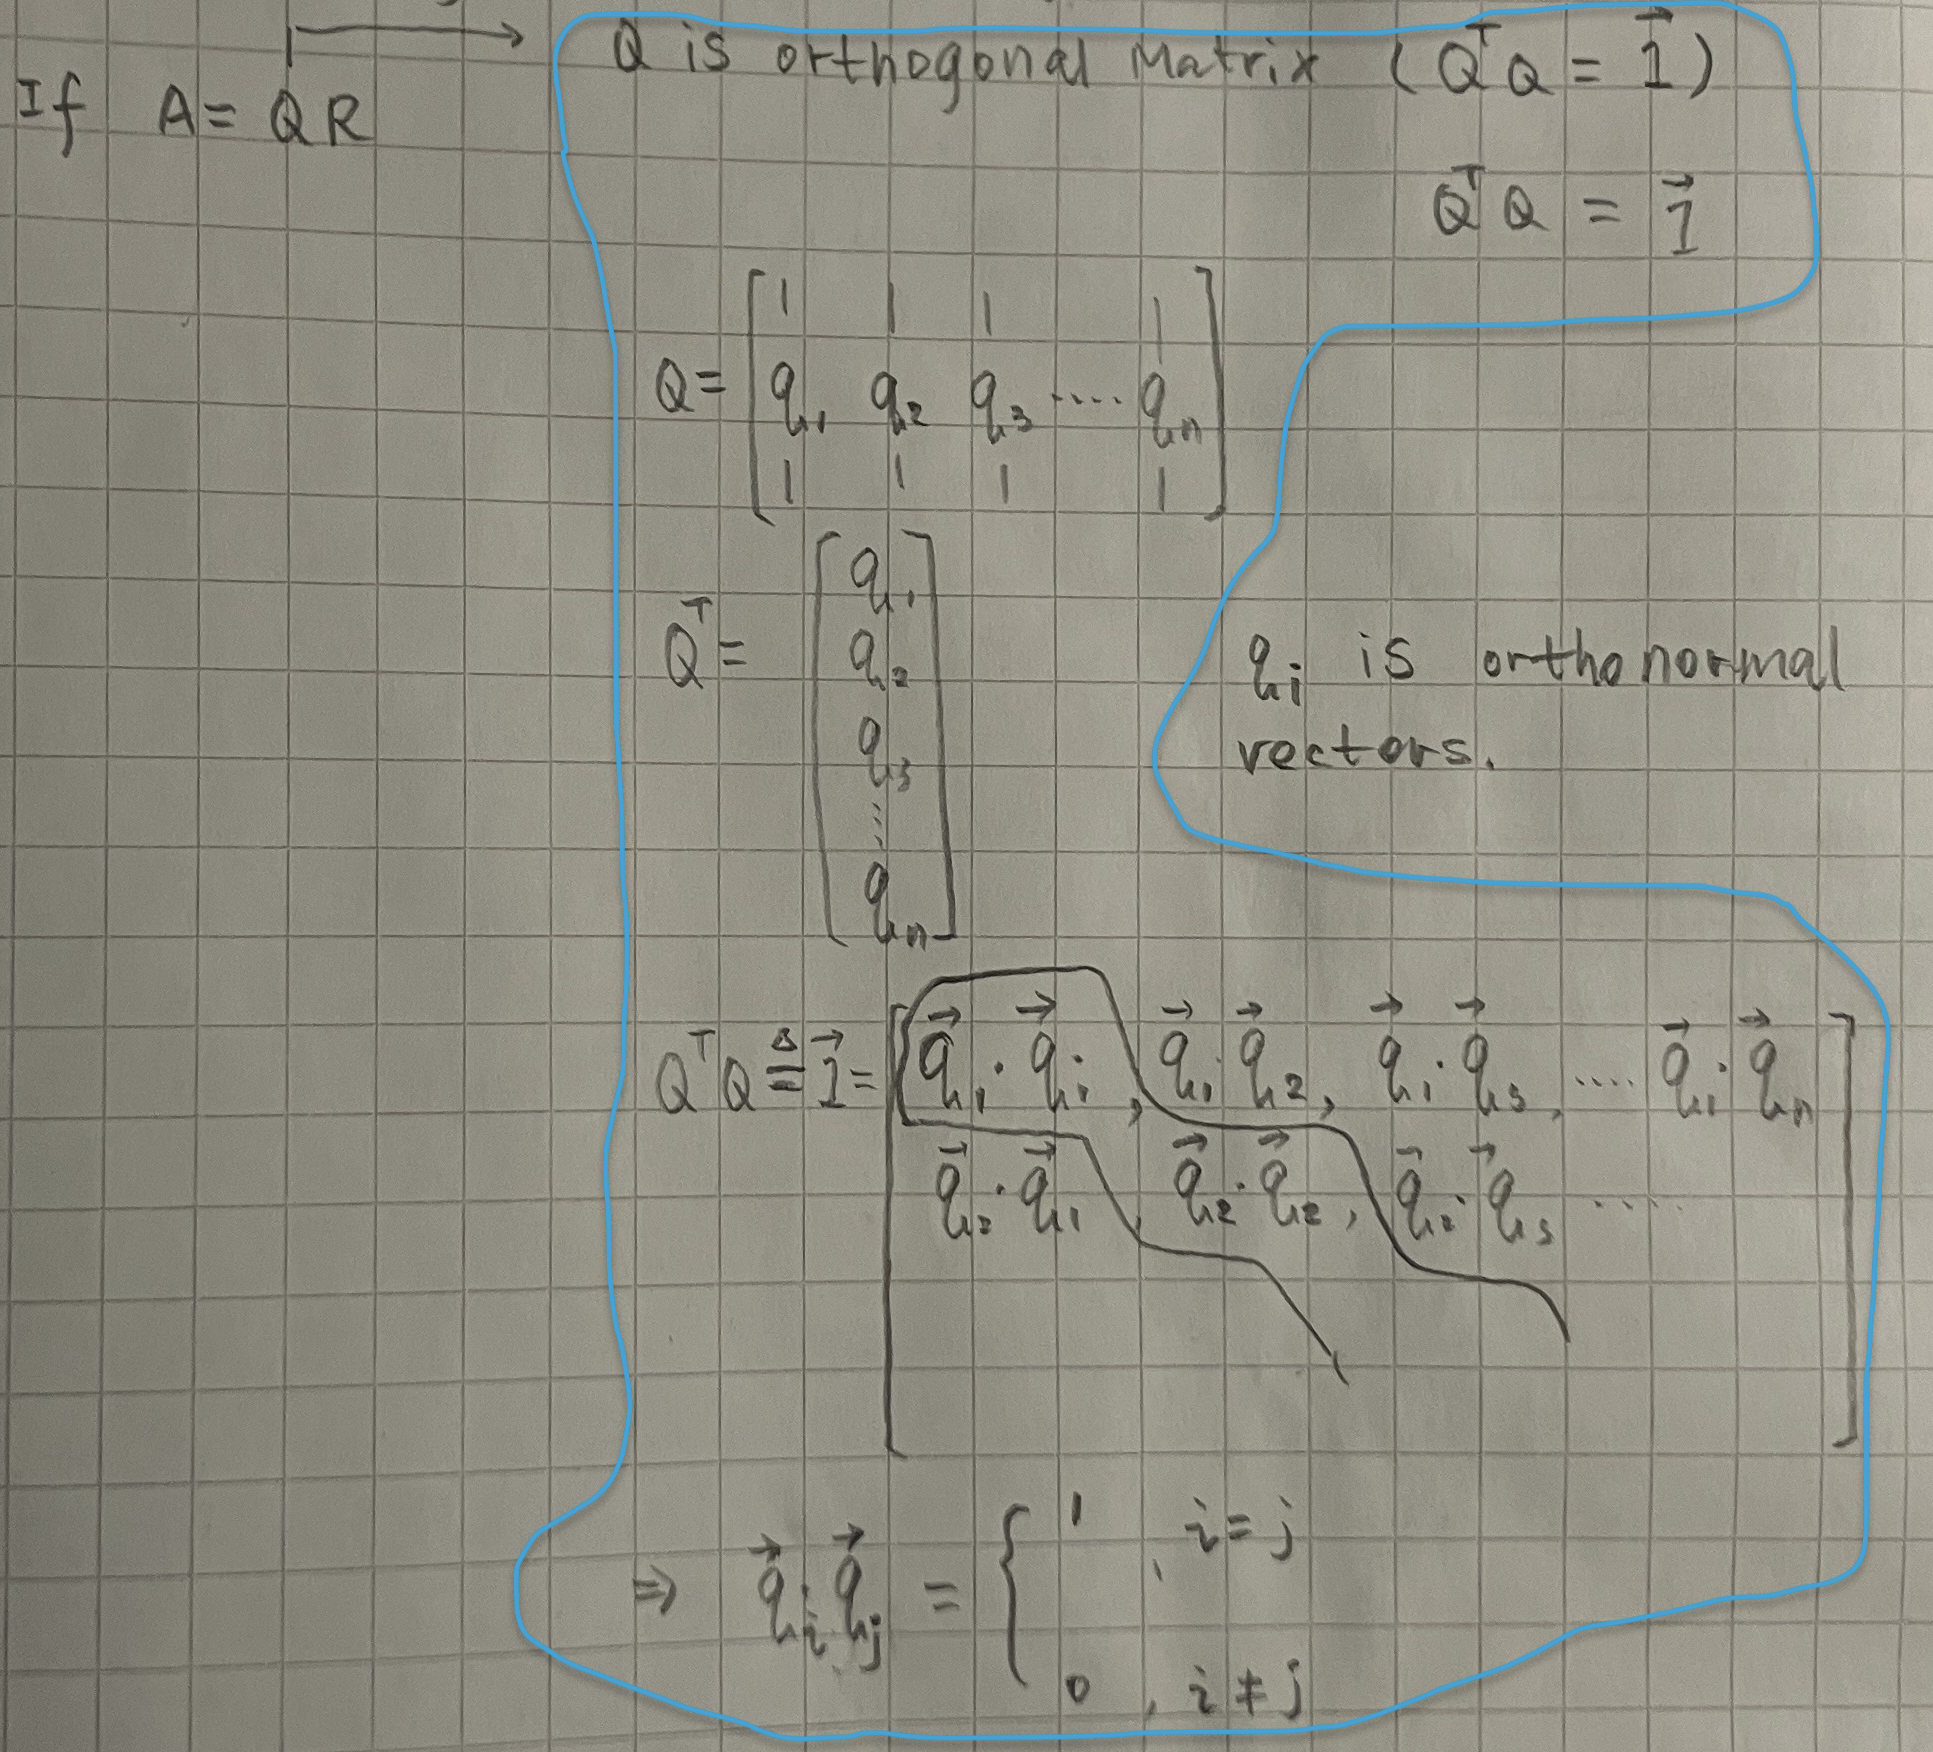 If A = QR
Q is orthogonal Matrix (QᵀQ = 1⃗)
QᵀQ = 1⃗
Q = [ | | | |
q₁ q₂ q₃ ···· qₙ
| | | | ]
Qᵀ = [ q₁
q₂
q₃
⋮
qₙ ]
qᵢ is orthonormal
vectors.
QᵀQ ≜ 1⃗ = [ q⃗₁·q⃗₁, q⃗₁·q⃗₂, q⃗₁·q⃗₃, ···· q⃗₁·q⃗ₙ
q⃗₂·q⃗₁ q⃗₂·q⃗₂, q⃗₂·q⃗₃ ····· ]
⇒ q⃗ᵢ·q⃗ⱼ = { 1, i = j
0, i ≠ j